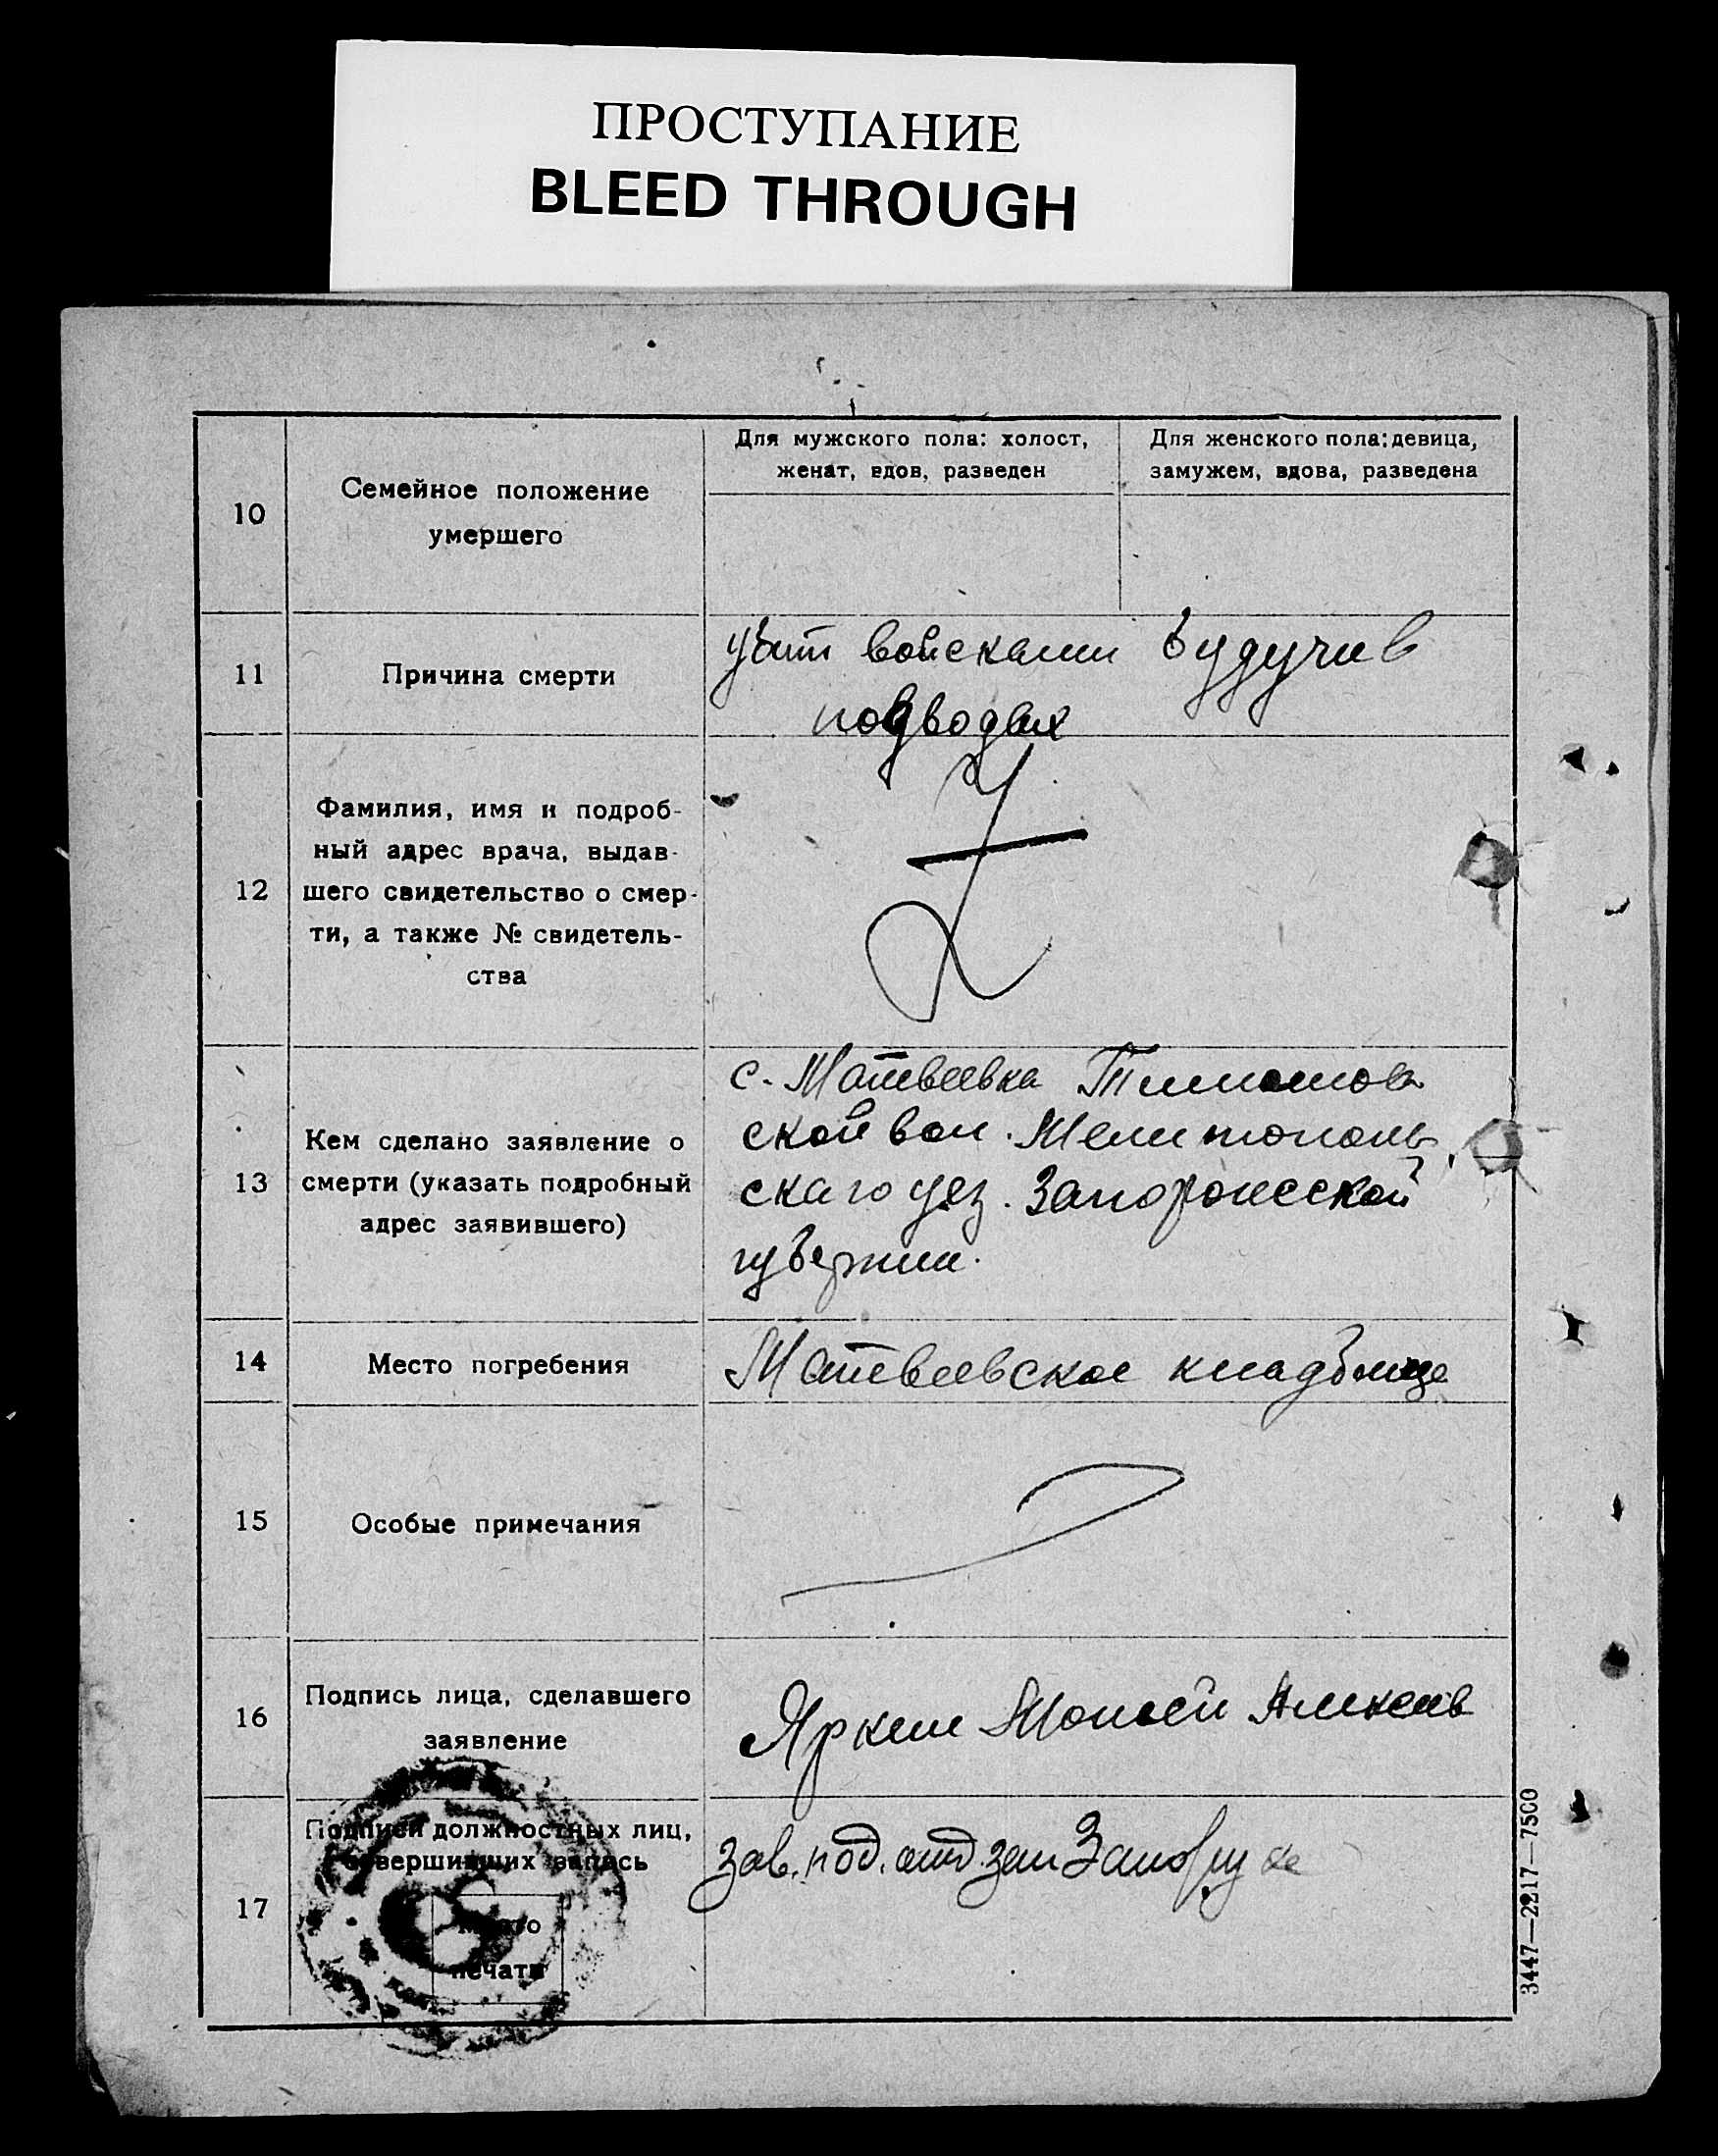 ПРОСТУПАНИЕ
BLEED THROUGH
10
Семейное положение
умершего
Для мужского пола: холост,
женат, вдов, разведен
Для женского пола: девица,
замужем, вдова, разведена
11
Причина смерти
убит войсками будучи в
подводах
12
Фамилия, имя и подроб-
ный адрес врача, выдав-
шего свидетельство о смер-
ти, а также № свидетель-
ства
13
Кем сделано заявление о
смерти (указать подробный
адрес заявившего)
с. Матвеевка Тимошов
ской вол. Мелитополь
скаго уез. Запорожской
губернии.
14
Место погребения
Матвеевское кладбище
15
Особые примечания
16
Подпись лица, сделавшего
заявление
Моисей
17
Подписи должностных лиц,
совершивших запись
Место
печати
зав. под. отд. зап
3447—2217—7500